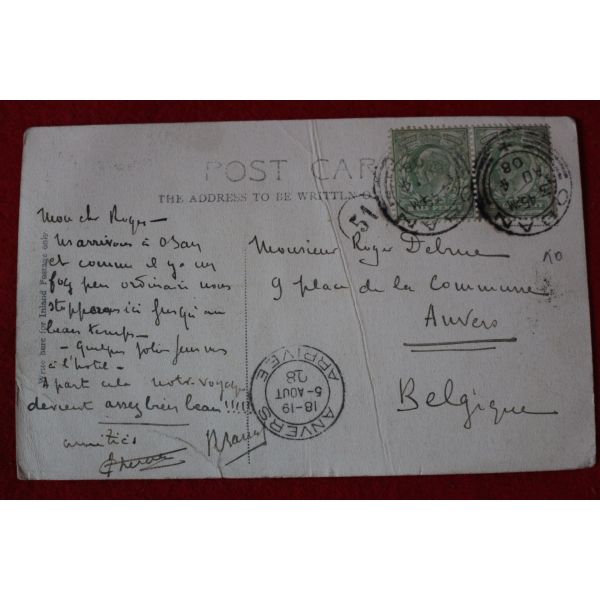 POST CAR
THE ADDRESS TO BE WRITTEN O
Write here for Inland Postage only
Mon cher Roger —
N arrivons à Oban
et comme il y a un
fog peu ordinaire nous
stopperons ici jusqu'au
beau temps —
- Quelques jolies
à l'hotel -
A part cela notre voyage
devient assez bien beau !!!!
amitiés
Monsieur Roger Delrue
9 place de la Commune
Anvers
Belgique
51
OBAN
AU 4
08
OBAN
AU 4
08
ANVERS
18-19
5-AOUT
ARRIVEE